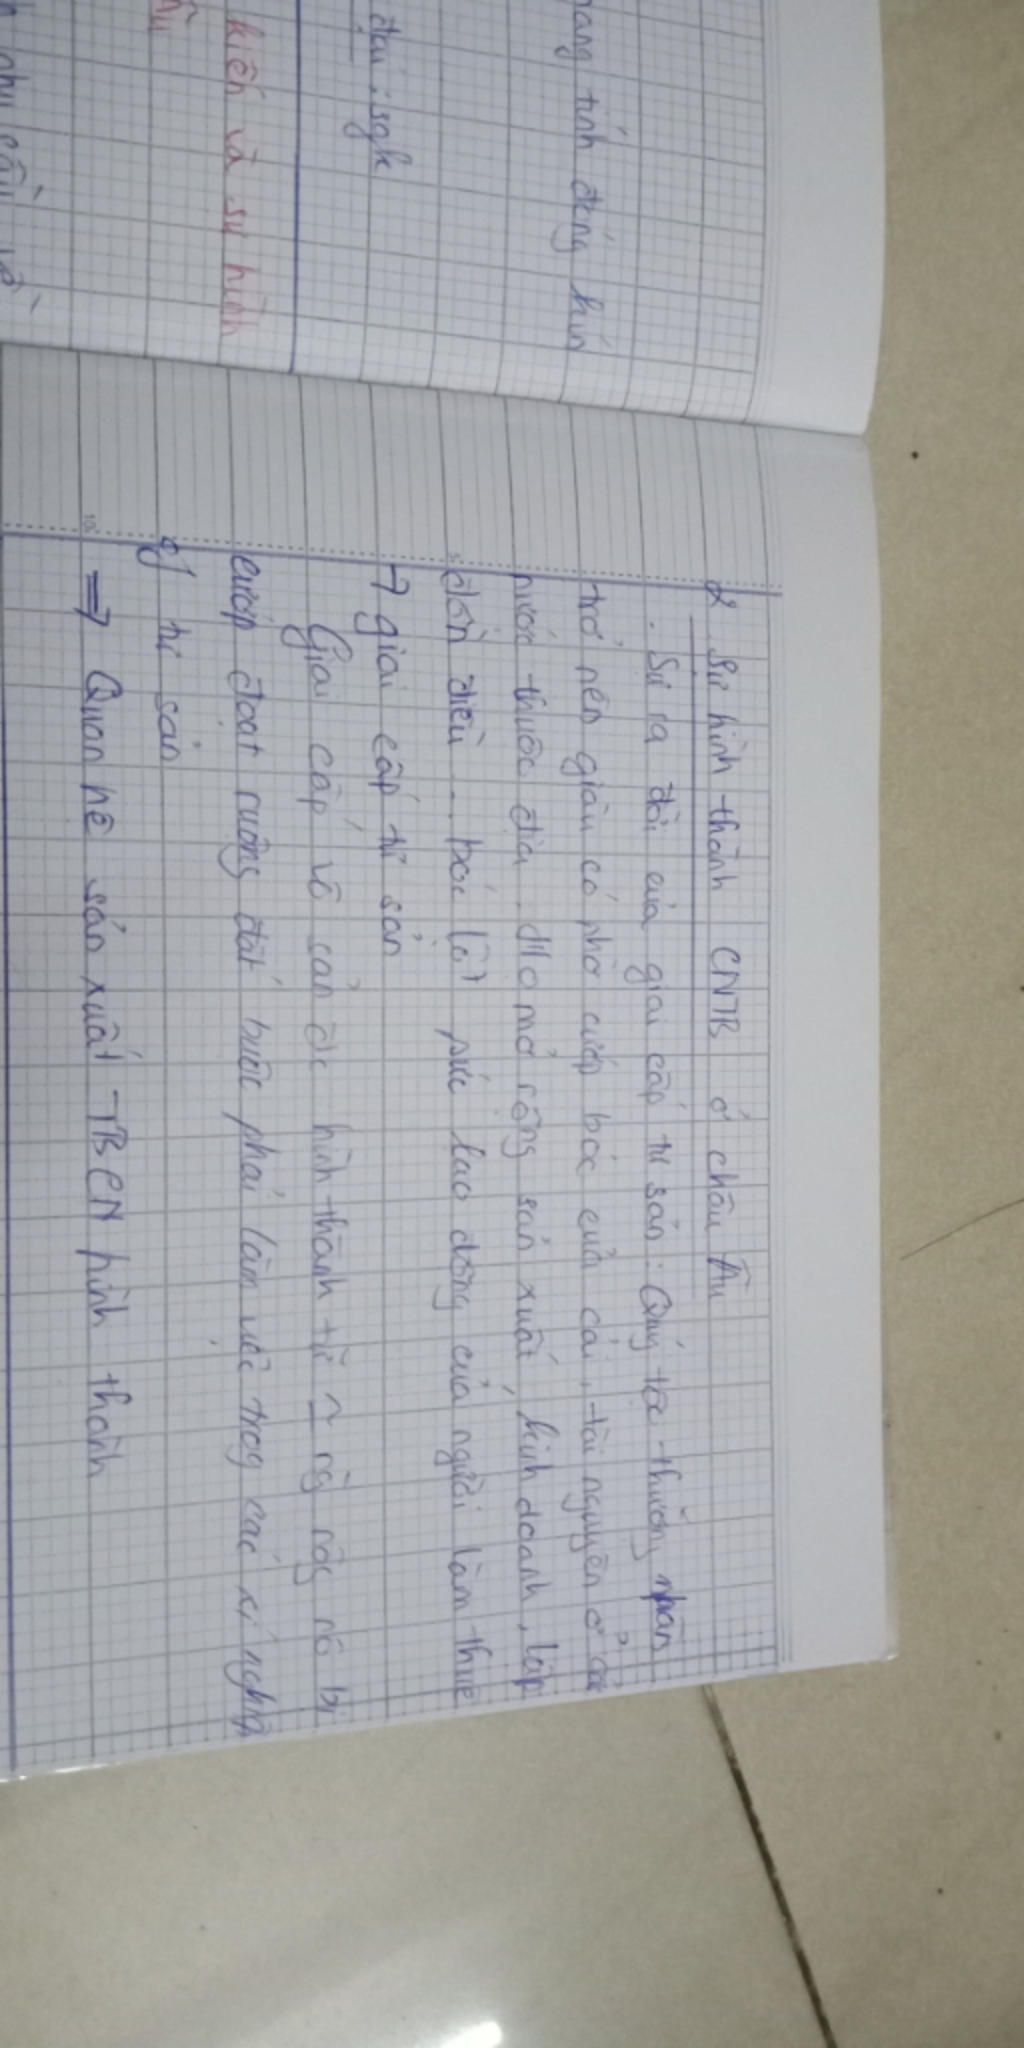 mang tính đóng kín
đại: sgk
kiến và sự hình
Âu
nhu cầu về
2 Sự hình thành CNTB ở châu Âu
. Sự ra đời của giai cấp tư sản: Quý tộc thương nhân
trở nên giàu có nhờ cướp bóc của cải, tài nguyên ở các
nước thuộc địa. Họ mở rộng sản xuất, kinh doanh, lập
đồn điền... bóc lột sức lao động của người làm thuê
→ giai cấp tư sản
Giai cấp vô sản đc hình thành từ ~ ng nông nô bị
cướp đoạt ruộng đất buộc phải làm việc trog các xí nghiệp
tư sản
=> Quan hệ sản xuất TBCN hình thành